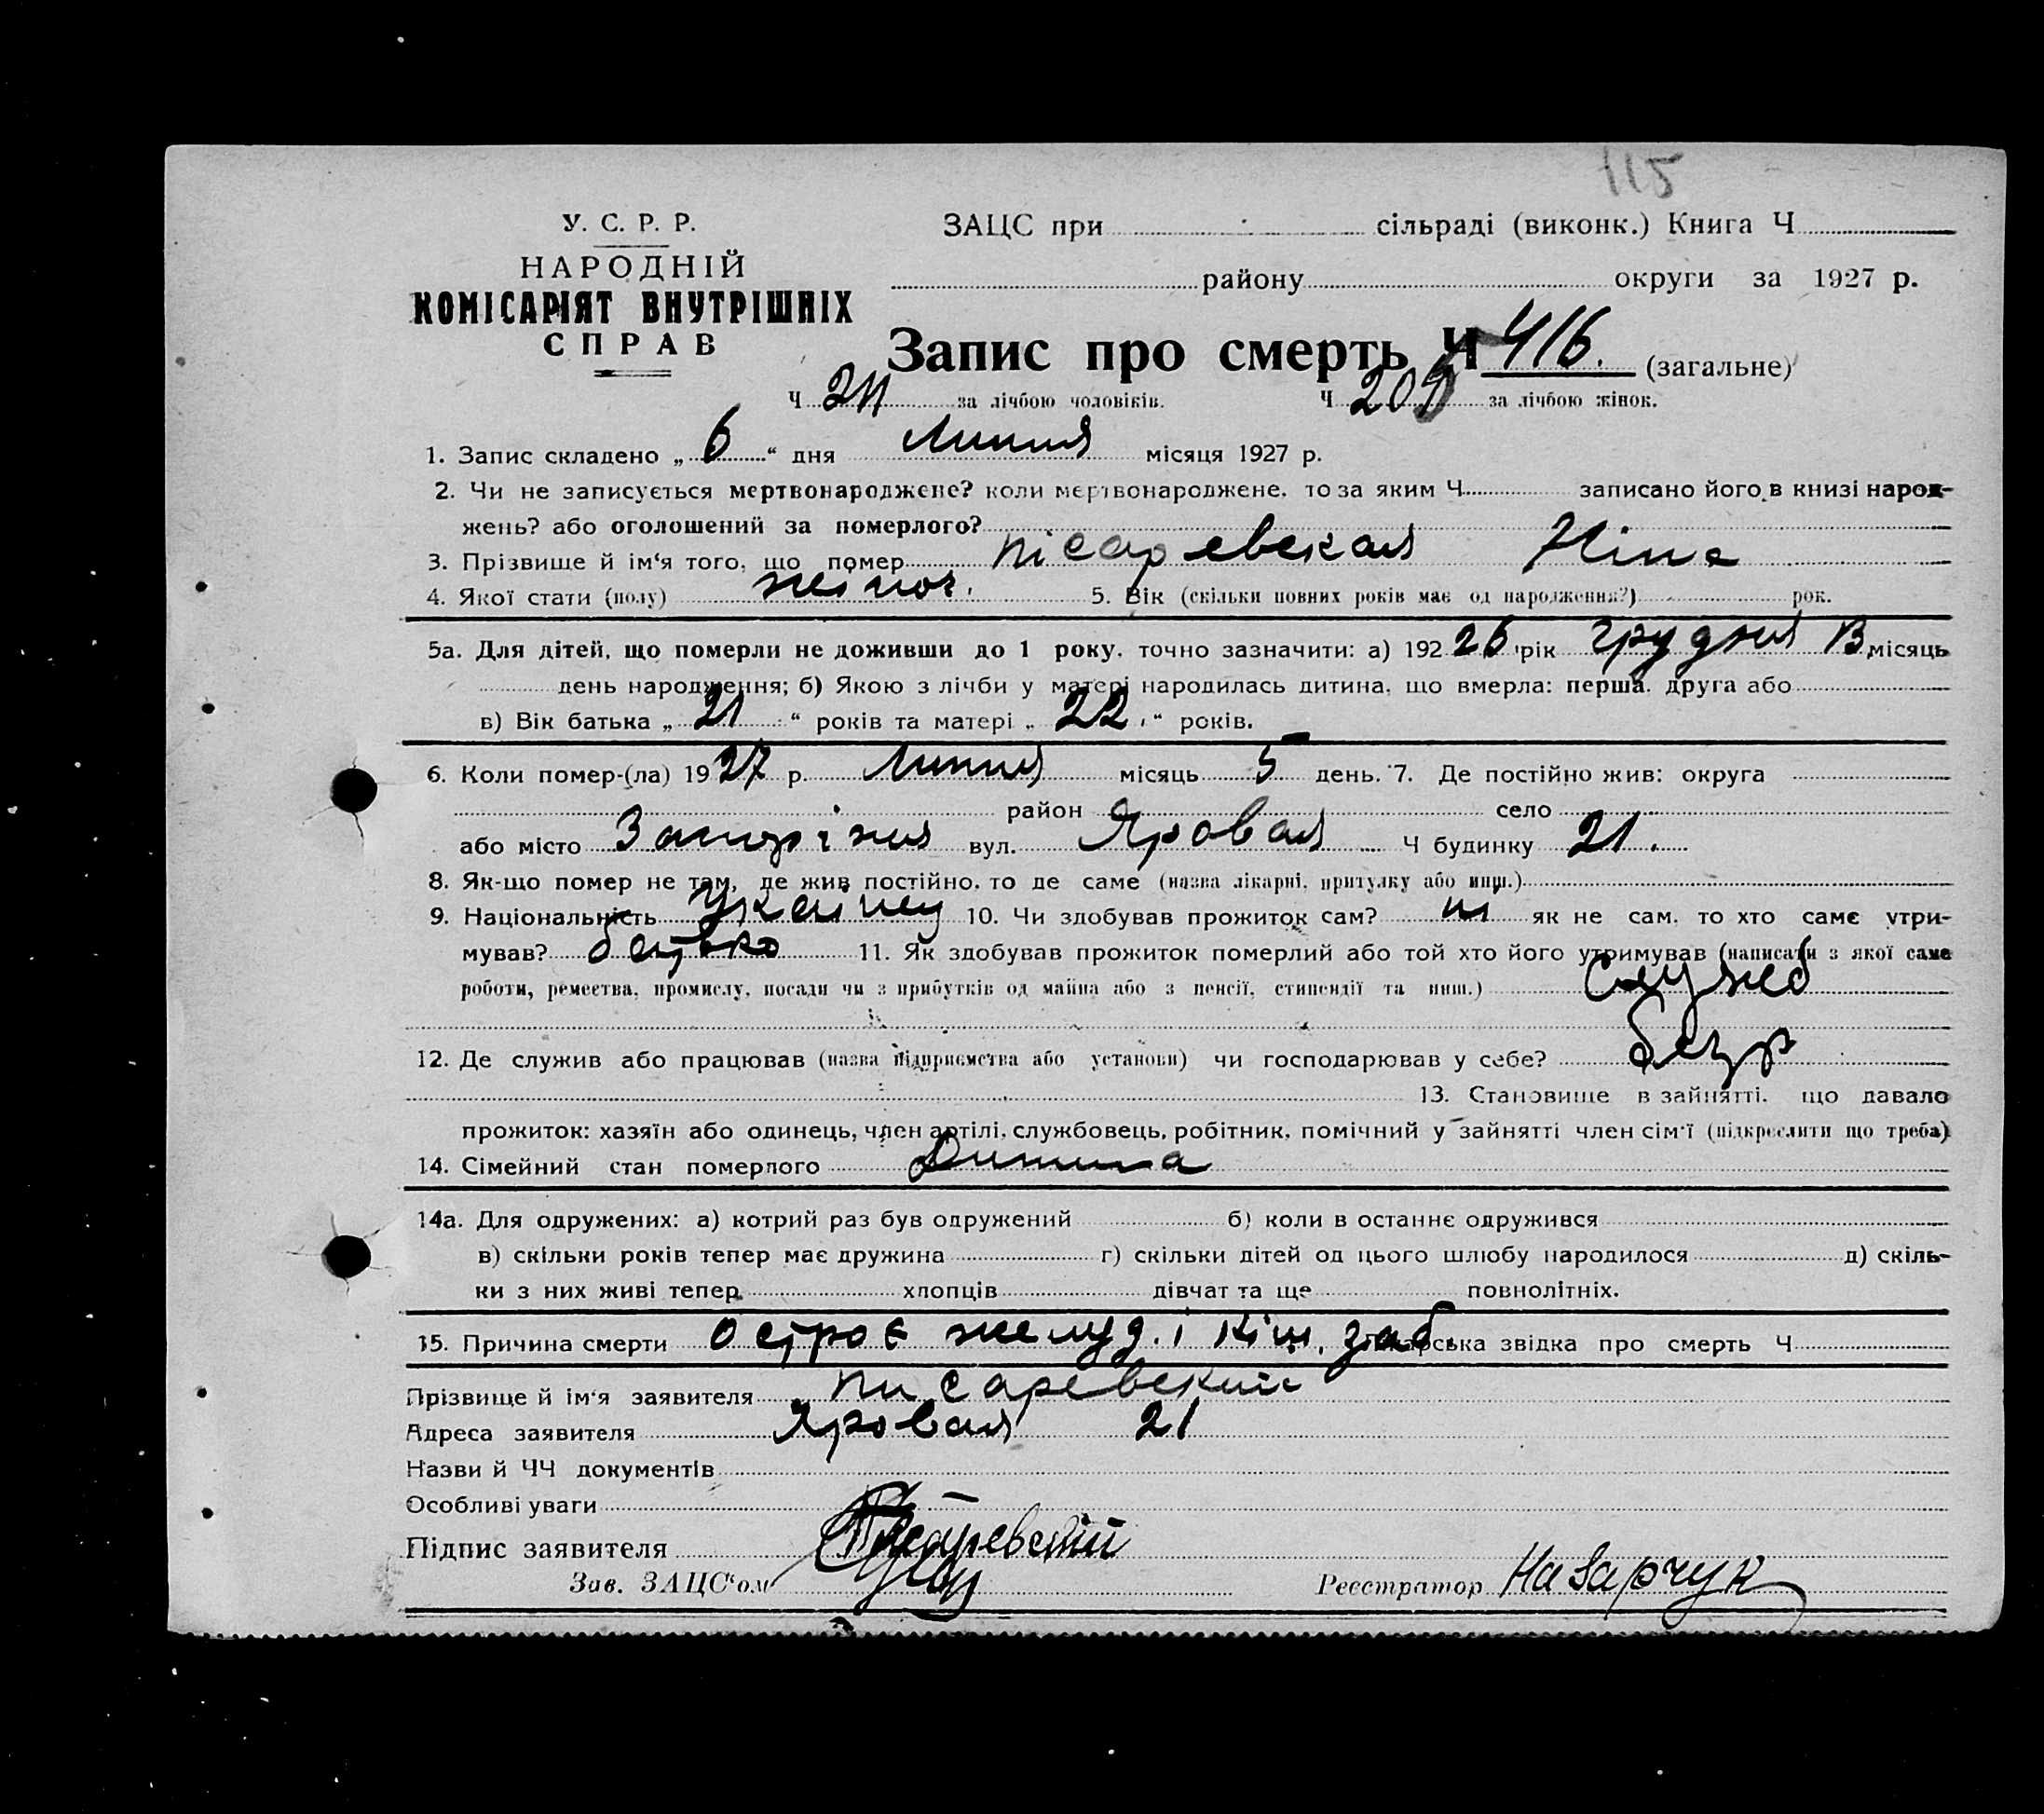 115
У. С. Р. Р.
НАРОДНІЙ
КОМІСАРІЯТ ВНУТРІШНІХ
СПРАВ
ЗАЦС при сільраді (виконк.) Книга Ч
району округи за 1927 р.
Запис про смерть Ч 416. (загальне)
Ч 211 за лічбою чоловіків. Ч 205 за лічбою жінок.
1. Запис складено „ 6 “ дня Липня місяця 1927 р.
2. Чи не записується мертвонароджене? коли мертвонароджене, то за яким Ч записано його в книзі народ-
жень? або оголошений за померлого?
3. Прізвище й ім‘я того, що помер Пісаревская Ніна
4. Якої стати (полу) жіноч. 5. Вік (скільки повних років має од народження?) рок.
5а. Для дітей, що померли не доживши до 1 року, точно зазначити: а) 192 26 рік грудня 13 місяць
день народження; б) Якою з лічби у матері народилась дитина, що вмерла: перша, друга або
в) Вік батька „ 21 “ років та матері „ 22 “ років.
6. Коли помер-(ла) 19 27 р. Липня місяць 5 день. 7. Де постійно жив: округа
район село
або місто Запоріжя вул. Яровая Ч будинку 21.
8. Як-що помер не там, де жив постійно, то де саме (назва лікарні, притулку або инш.)
9. Національність 10. Чи здобував прожиток сам? ні як не сам, то хто саме утри-
мував? батько 11. Як здобував прожиток померлий або той хто його утримував (написати з якої саме
роботи, ремества, промислу, посади чи з прибутків од майна або з пенсії, стипендії та инш.) служб
12. Де служив або працював (назва підприємства або установи) чи господарював у себе? безр
13. Становище в зайнятті, що давало
прожиток: хазяїн або одинець, член артілі, службовець, робітник, помічний у зайнятті член сім‘ї (підкреслити що треба)
14. Сімейний стан померлого Дитина
14а. Для одружених: а) котрий раз був одружений б) коли в останнє одружився
в) скільки років тепер має дружина г) скільки дітей од цього шлюбу народилося д) скіль-
ки з них живі тепер хлопців дівчат та ще повнолітніх.
15. Причина смерти острое желуд. і кіш. заб. Лікарська звідка про смерть Ч
Прізвище й ім‘я заявителя Писаревский
Адреса заявителя Яровая 21
Назви й ЧЧ документів
Особливі уваги
Підпис заявителя Писаревский
Зав. ЗАЦС‘ом Реєстратор Назарчук